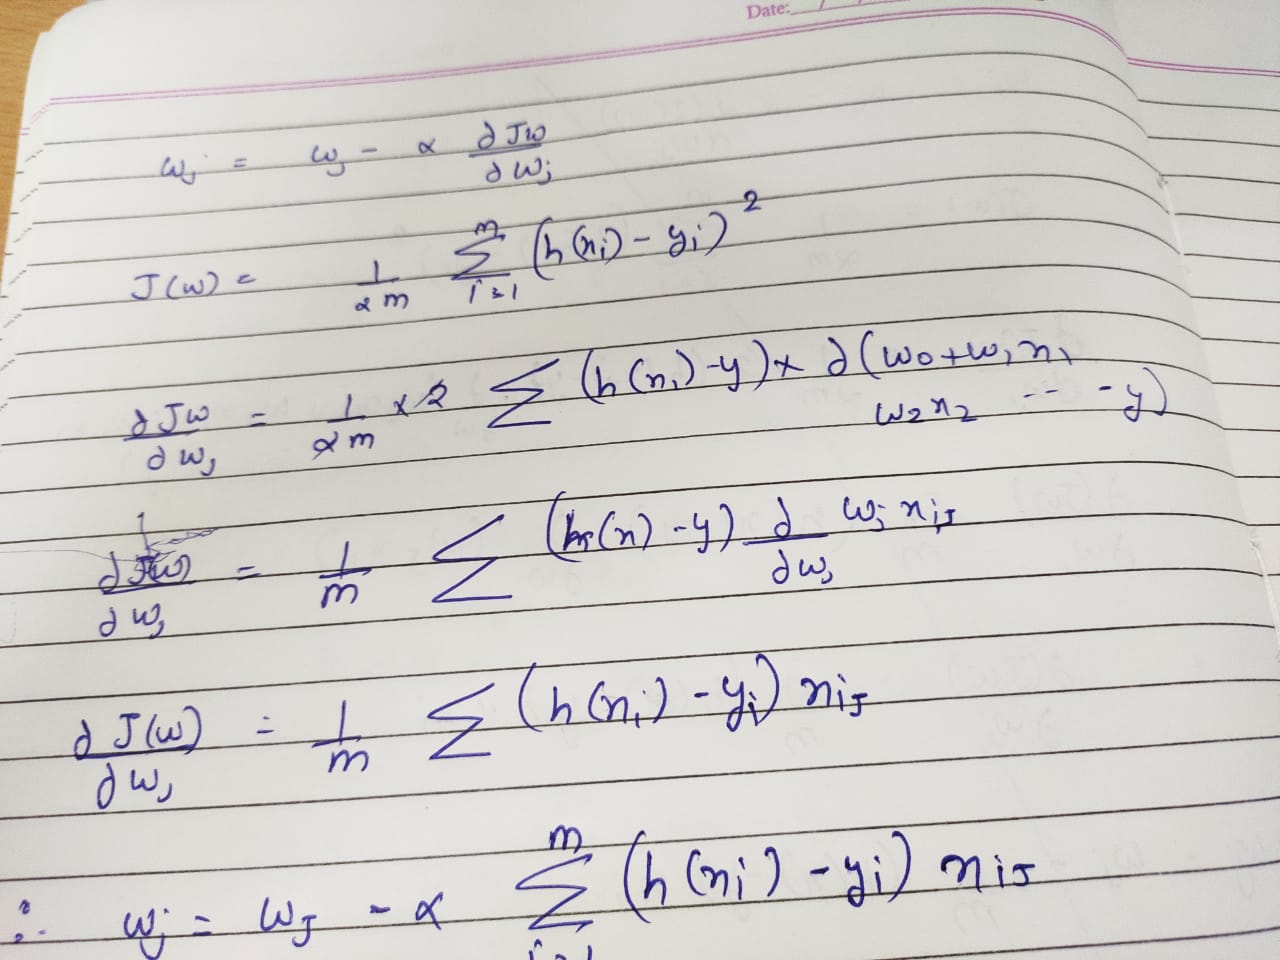 Date:
wj = wj - α ∂Jw/∂wj
J(w) = 1/2m Σ_{i=1}^{m} (h(xi) - yi)^2
∂Jw/∂wj = 1/2m × 2 Σ (h(xi) - y) × ∂(w0 + w1x1
w2x2 -- - - y)
∂J(w)/∂wj = 1/m Σ (h(x) - y) ∂/∂wj wj xij
∂J(w)/∂wj = 1/m Σ (h(xi) - yi) xij
∴ wj = wj - α Σ_{i=1}^{m} (h(xi) - yi) xij